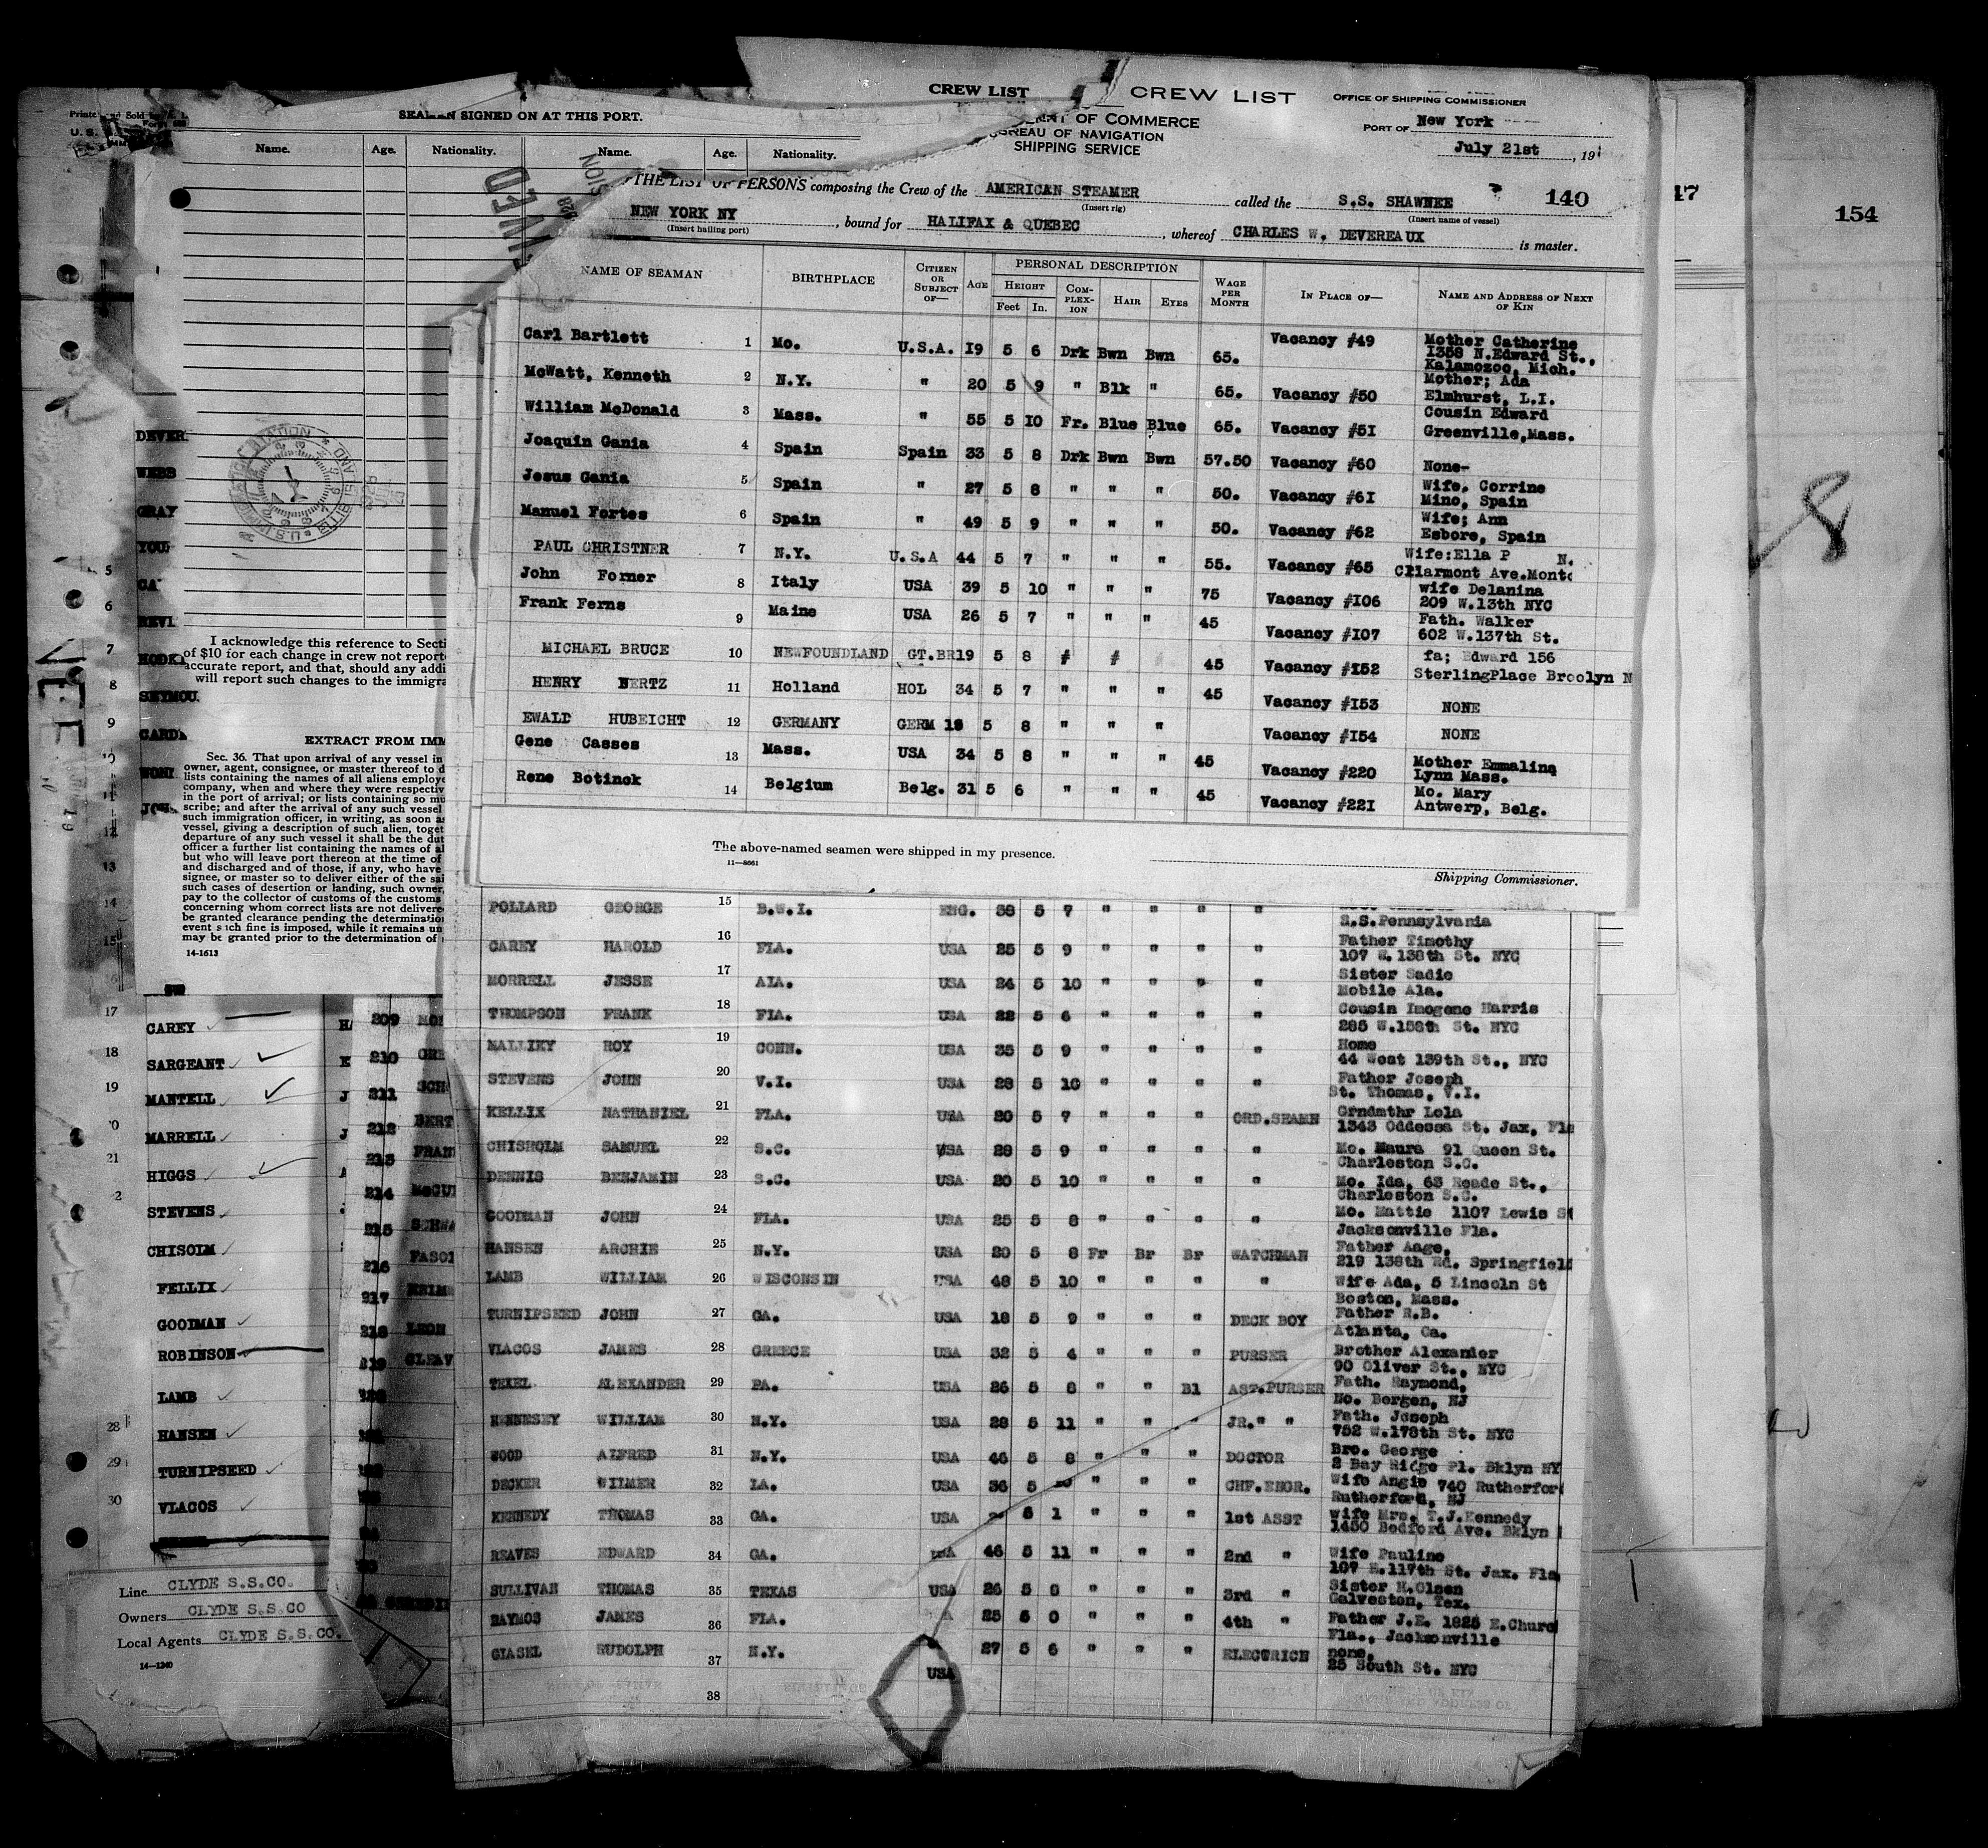 CREW LIST
CREW LIST
OFFICE OF SHIPPING COMMISSIONER
PORT OF New York
July 21st, 19
OF COMMERCE
BUREAU OF NAVIGATION
SHIPPING SERVICE
THE LIST OF PERSONS composing the Crew of the AMERICAN STEAMER called the S.S. SHAWNEE 140
(Insert rig) (Insert name of vessel)
NEW YORK NY, bound for HALIFAX & QUEBEC, whereof CHARLES W. DEVEREAUX is master.
(Insert hailing port)
NAME OF SEAMAN BIRTHPLACE CITIZEN OR SUBJECT OF— AGE PERSONAL DESCRIPTION WAGE PER MONTH IN PLACE OF— NAME AND ADDRESS OF NEXT OF KIN
HEIGHT COMPLEXION HAIR EYES
Feet In.
Carl Bartlett 1 Mo. U.S.A. 19 5 6 Drk Bwn Bwn 65. Vacancy #49 Mother Catherine
1358 N.Edward St.,
Kalamozoo, Mich.
McWatt, Kenneth 2 N.Y. " 20 5 9 " Blk " 65. Vacancy #50 Mother; Ada
Elmhurst, L.I.
William McDonald 3 Mass. " 55 5 10 Fr. Blue Blue 65. Vacancy #51 Cousin Edward
Greenville,Mass.
Joaquin Gania 4 Spain Spain 33 5 8 Drk Bwn Bwn 57.50 Vacancy #60 None-
Jesus Gania 5 Spain " 27 5 8 " " " 50. Vacancy #61 Wife, Corrine
Mino, Spain
Manuel Fortes 6 Spain " 49 5 9 " " " 50. Vacancy #62 Wife; Ann
Esbore, Spain
PAUL CHRISTNER 7 N.Y. U.S.A 44 5 7 " " " 55. Vacancy #65 Wife:Ella P N.
Clarmont Ave.Mont
John Forner 8 Italy USA 39 5 10 " " " 75 Vacancy #106 wife Delanina
209 W.13th NYC
Frank Ferns 9 Maine USA 26 5 7 " " " 45 Vacancy #107 Fath. Walker
602 W.137th St.
MICHAEL BRUCE 10 NEWFOUNDLAND GT.BR 19 5 8 # # 45 Vacancy #152 fa; Edward 156
SterlingPlace Broolyn N
HENRY NERTZ 11 Holland HOL 34 5 7 " " " 45 Vacancy #153 NONE
EWALD HUBEICHT 12 GERMANY GERM 5 8 " " " Vacancy #154 NONE
Gene Casses 13 Mass. USA 34 5 8 " " " 45 Vacancy #220 Mother Emmaline
Lynn Mass.
Rene Botinck 14 Belgium Belg. 31 5 6 " " " 45 Vacancy #221 Mo. Mary
Antwerp, Belg.
The above-named seamen were shipped in my presence.
11—8661
Shipping Commissioner.
POLLARD GEORGE 15 B.W.I. ENG. 38 5 7 " " " "
S.S.Pennsylvania
CAREY HAROLD 16 FLA. USA 25 5 9 " " " " Father Timothy
107 W.138th St. NYC
MORRELL JESSE 17 ALA. USA 24 5 10 " " " " Sister Sadie
Mobile Ala.
THOMPSON FRANK 18 FLA. USA 22 5 6 " " " " Cousin Imogene Harris
285 W.158th St. NYC
ROY 19 CONN. USA 35 5 9 " " " " Home
44 West 139th St., NYC
STEVENS JOHN 20 V.I. USA 28 5 10 " " " " Father Joseph
St. Thomas, V.I.
KELLIX NATHANIEL 21 FLA. USA 20 5 7 " " " ORD.SEAMN Grndmthr Lola
1343 Oddessa St. Jax, Fla
CHISHOLM SAMUEL 22 S.C. USA 28 5 9 " " " " Mo. Maura 91 Queen St.
Charleston S.C.
DENNIS BENJAMIN 23 S.C. USA 20 5 10 " " " " Mo. Ida, 63 Reade St.,
Charleston S.C.
GOODMAN JOHN 24 FLA. USA 25 5 8 " " " " Mo. Mattie 1107 Lewis St
Jacksonville Fla.
HANSEN ARCHIE 25 N.Y. USA 20 5 8 Fr Br Br WATCHMAN Father Aage,
219 138th Rd. Springfield
LAMB WILLIAM 26 WISCONSIN USA 48 5 10 " " " " Wife Ada, 5 Lincoln St
Boston, Mass.
TURNIPSEED JOHN 27 GA. USA 18 5 9 " " " DECK BOY Father R.B.
Atlanta, Ga.
VLACOS JAMES 28 GREECE USA 32 5 4 " " " PURSER Brother Alexander
90 Oliver St., NYC
TEXEL ALEXANDER 29 PA. USA 26 5 8 " " Bl AST.PURSER Fath. Raymond,
No. Bergen, NJ
HENNESEY WILLIAM 30 N.Y. USA 28 5 11 " " " JR." " Fath. Joseph
752 W.178th St. NYC
WOOD ALFRED 31 N.Y. USA 46 5 8 " " " DOCTOR Bro. George
2 Bay Ridge Pl. Bklyn NY
DECKER WILMER 32 LA. USA 36 5 " " " CHF.ENGR. Wife Angie 740 Rutherfor
Rutherford, NJ
KENNEDY THOMAS 33 GA. USA 5 1 " " " 1st ASST wife Mrs. T.J.Kennedy
1450 Bedford Ave. Bklyn
REAVES EDWARD 34 GA. USA 46 5 11 " " " 2nd " Wife Pauline
107 E.117th St. Jax. Fla
SULLIVAN THOMAS 35 TEXAS USA 26 5 " " " 3rd " Sister H.Olsen
Galveston, Tex.
RAYMOS JAMES 36 FLA. 25 " " " 4th " Father J.E. 1825 E.Churc
Fla., Jacksonville
GIASEL RUDOLPH 37 N.Y. USA 27 5 6 " " " ELECTRICN none,
25 South St. NYC
38
SEAMEN SIGNED ON AT THIS PORT.
Name. Age. Nationality. Name. Age. Nationality.
I acknowledge this reference to Secti
of $10 for each change in crew not report
accurate report, and that, should any addi
will report such changes to the immigra
EXTRACT FROM IMM
Sec. 36. That upon arrival of any vessel in
owner, agent, consignee, or master thereof to d
lists containing the names of all aliens employe
company, when and where they were respectiv
in the port of arrival; or lists containing so mu
scribe; and after the arrival of any such vessel
such immigration officer, in writing, as soon as
vessel, giving a description of such alien, toget
departure of any such vessel it shall be the dut
officer a further list containing the names of al
but who will leave port thereon at the time of
and discharged and of those, if any, who have
signee, or master so to deliver either of the sai
such cases of desertion or landing, such owner,
pay to the collector of customs of the customs
concerning whom correct lists are not delivered
be granted clearance pending the determination
event such fine is imposed, while it remains un
may be granted prior to the determination of
14-1613
DEVER
WEBB
GRAY
YOU
CA
REVI
HODK
SEYMOU
CARD
5
6
7
8
9
10
11
12
13
14
15
17 CAREY
18 SARGEANT
19 MANTELL
MARRELL
21 HIGGS
STEVENS
CHISOLM
FELLIX
GOODMAN
ROBINSON
LAMB
28 HANSEN
29 TURNIPSEED
30 VLACOS
209
210 GRE
211 SCH
212 BERT
213 FRAN
214 McGUI
215 SCHWA
216 FASO
217
218 LEON
219 CLEAV
Line CLYDE S.S.CO.
Owners CLYDE S.S.CO
Local Agents CLYDE S.S.CO.
14—1240
47
154
8